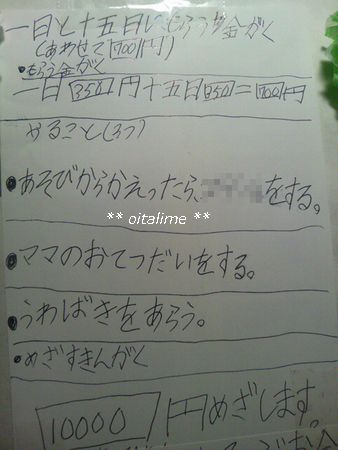 一日と十五日にもらう金がく
(あわせて700円)
•もらう金がく
一日350円+五日350=700円
やること(3つ)
•あそびからかえったら、をする。
** oitalime **
•ママのおてつだいをする。
•うわばきをあらう。
•めざすきんがく
10000円めざします。